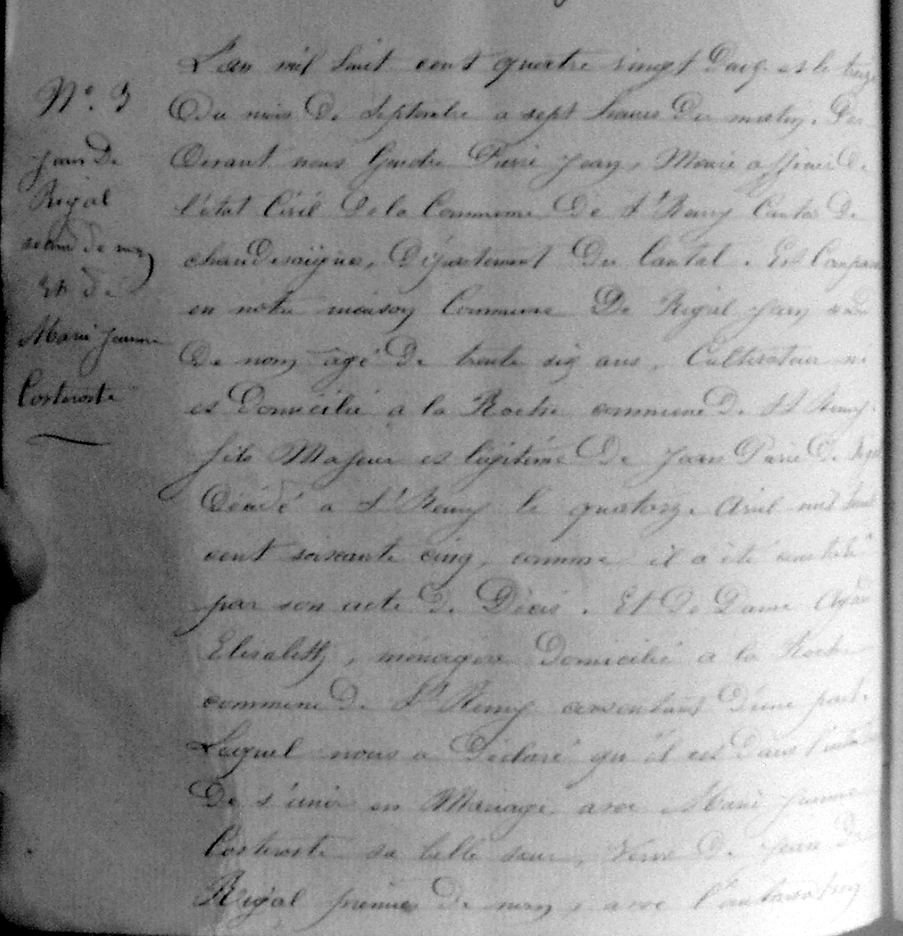 N° 3
Jean De
Rigal
second de nom
Et de
Marie Jeanne
Costeroste
L'an mil huit cent quatre vingt Deux et le treize
Du mois De Septembre a sept heures Du matin. Par
Devant nous Pierre Jean, Maire officier De
l'état Civil De la Commune De St Remy Canton De
chaudesaigues, Département Du Cantal. Est Comparu
en notre maison Commune De Rigal Jean second
De nom, âgé De trente six ans, Cultivateur né
et Domicilié à la Roche commune De St Remy.
fils Majeur et légitime De Jean Pierre De Rigal
Décédé a St Remy le quatorze Avril mil huit
cent soixante cinq, comme il a été constaté
par son acte De Décès. Et De Dame
Elisabeth, ménagère Domicilié a la Roche
commune De St Remy consentant D'une part.
Lequel nous a Déclaré qu'il est Dans l'intention
De s'unir en Mariage avec Marie Jeanne
Costeroste sa belle sœur, Veuve De Jean De
Rigal premier De nom, avec l'autorisation